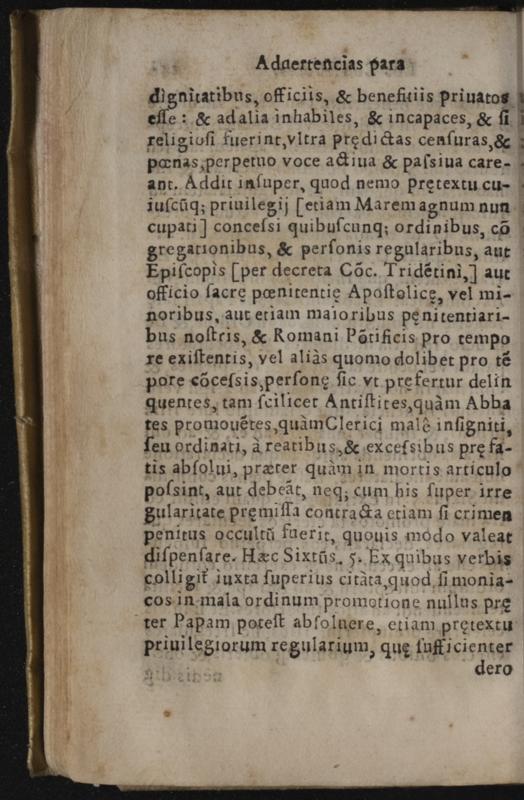 Aduertencias para
dignitatibus, officiis, & benefitiis priuatos
esse: & ad alia inhabiles, & incapaces, & si
religiosi fuerint, vltra prędictas censuras, &
pœnas, perpetuo voce actiua & passiua care-
ant. Addit insuper, quod nemo prętextu cu-
iuscūq; priuilegij [etiam Mare magnum nun
cupati] concessi quibuscunq; ordinibus, cō
gregationibus, & personis regularibus, aut
Episcopis [per decreta Cōc. Tridētini,] aut
officio sacrę pœnitentię Apostolicę, vel mi-
noribus, aut etiam maioribus pęnitentiari-
bus nostris, & Romani Pōtificis pro tempo
re existentis, vel aliàs quomodolibet pro tē
pore cōcessis, personę sic vt pręfertur delin
quentes, tam scilicet Antistites, quàm Abba
tes promouētes, quàm Clerici malè insigniti,
seu ordinati, à reatibus, & excessibus pręfa-
tis absolui, præter quàm in mortis articulo
possint, aut debeāt, neq; cum his super irre
gularitate pręmissa contracta etiam si crimen
penitus occultū fuerit, quouis modo valeat
dispensare. Hæc Sixtūs. 5. Ex quibus verbis
colligit̄ iuxta superius citàta, quod simonia-
cos in mala ordinum promotione nullus prę
ter Papam potest absoluere, etiam prętextu
priuilegiorum regularium, quę sufficienter
dero